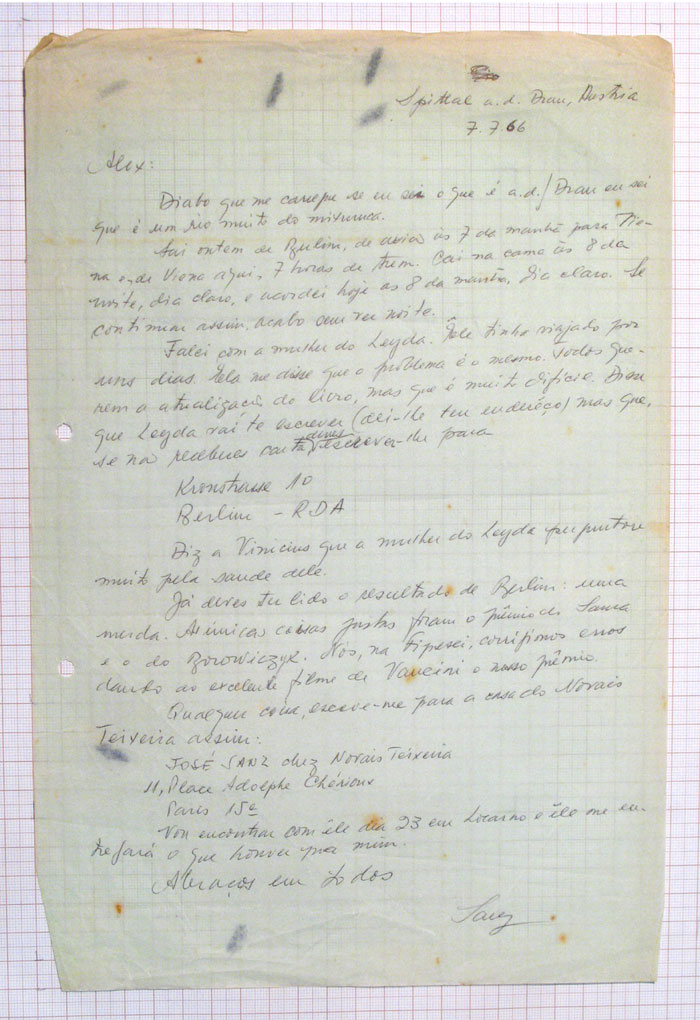 Spittal a.d. Drau, Austria
7.7.66
Alex:
Diabo que me carregue se eu sei o que é a.d./Drau eu sei
que é um rio muito do mixuruca.
Saí ontem de Berlim, de avião às 7 da manhã para Vie-
na e, de Viena aqui, 7 horas de trem. Caí na cama às 8 da
noite, dia claro, e acordei hoje as 8 da manhã, dia claro. Se
continuar assim, acabo sem ver noite.
Falei com a mulher do Leyda. Êle tinha viajado por
uns dias. Ela me disse que o problema é o mesmo. Todos que-
rem a atualização do livro, mas que é muito difícil. Disse
que Leyda vai te escrever (dei-lhe teu endereço) mas que,
se não receberes carta deves escrever-lhe para
Kronstrasse 10
Berlim - RDA
Diz a Vinicius que a mulher do Leyda perguntou
muito pela saude dele.
Já deves ter lido o resultado de Berlim: uma
merda. As únicas coisas justas foram o prêmio de Saura
e o do Borowiczyk. Nós, na Fipresci, corrigimos erros
dando ao excelente filme de Vancini o nosso prêmio.
Qualquer coisa, escreve-me para a casa do Novais
Teixeira assim:
JOSÉ SANZ chez Novais Teixeira
11, Place Adolphe Chérioux
Paris 15e
Vou encontrar com êle dia 23 em Locarno e êle me en-
tregará o que houver pra mim.
Abraços em todos
Sanz